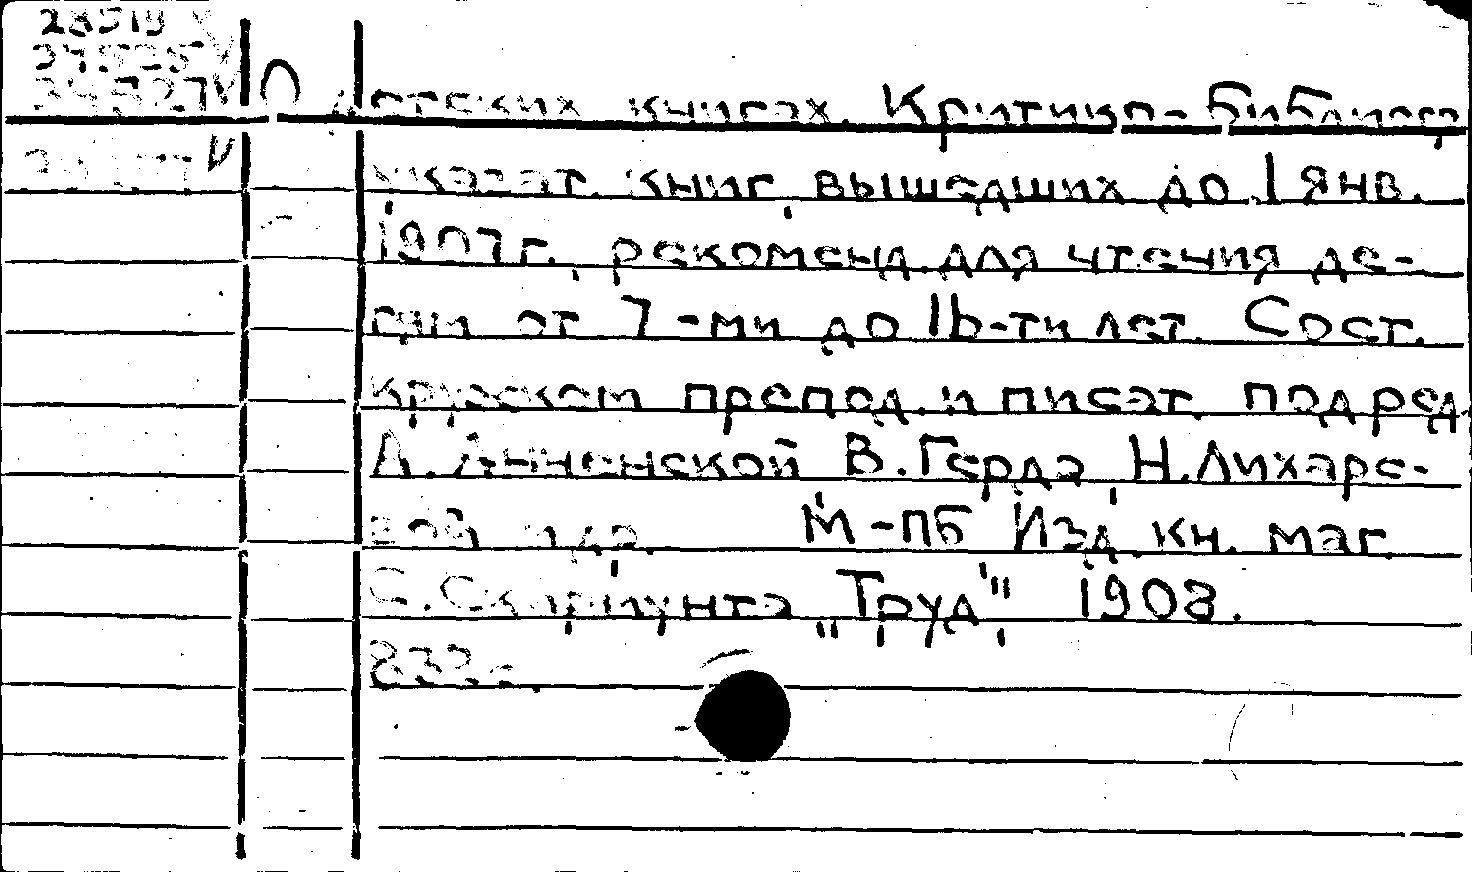 28519
О детских книгах. Критико-библиогр
указат. книг, вышедших до 1 янв.
1907 г., рекоменд. для чтения де-
тям от 7-ми до 16-ти лет. Сост.
кружком препод. и писат. под ред
А. Анненской В. Герда, Н. Лихаре-
вой и др. М-ПБ Изд. кн. маг.
С. Скирмунта „Труд", 1908.
832 с.